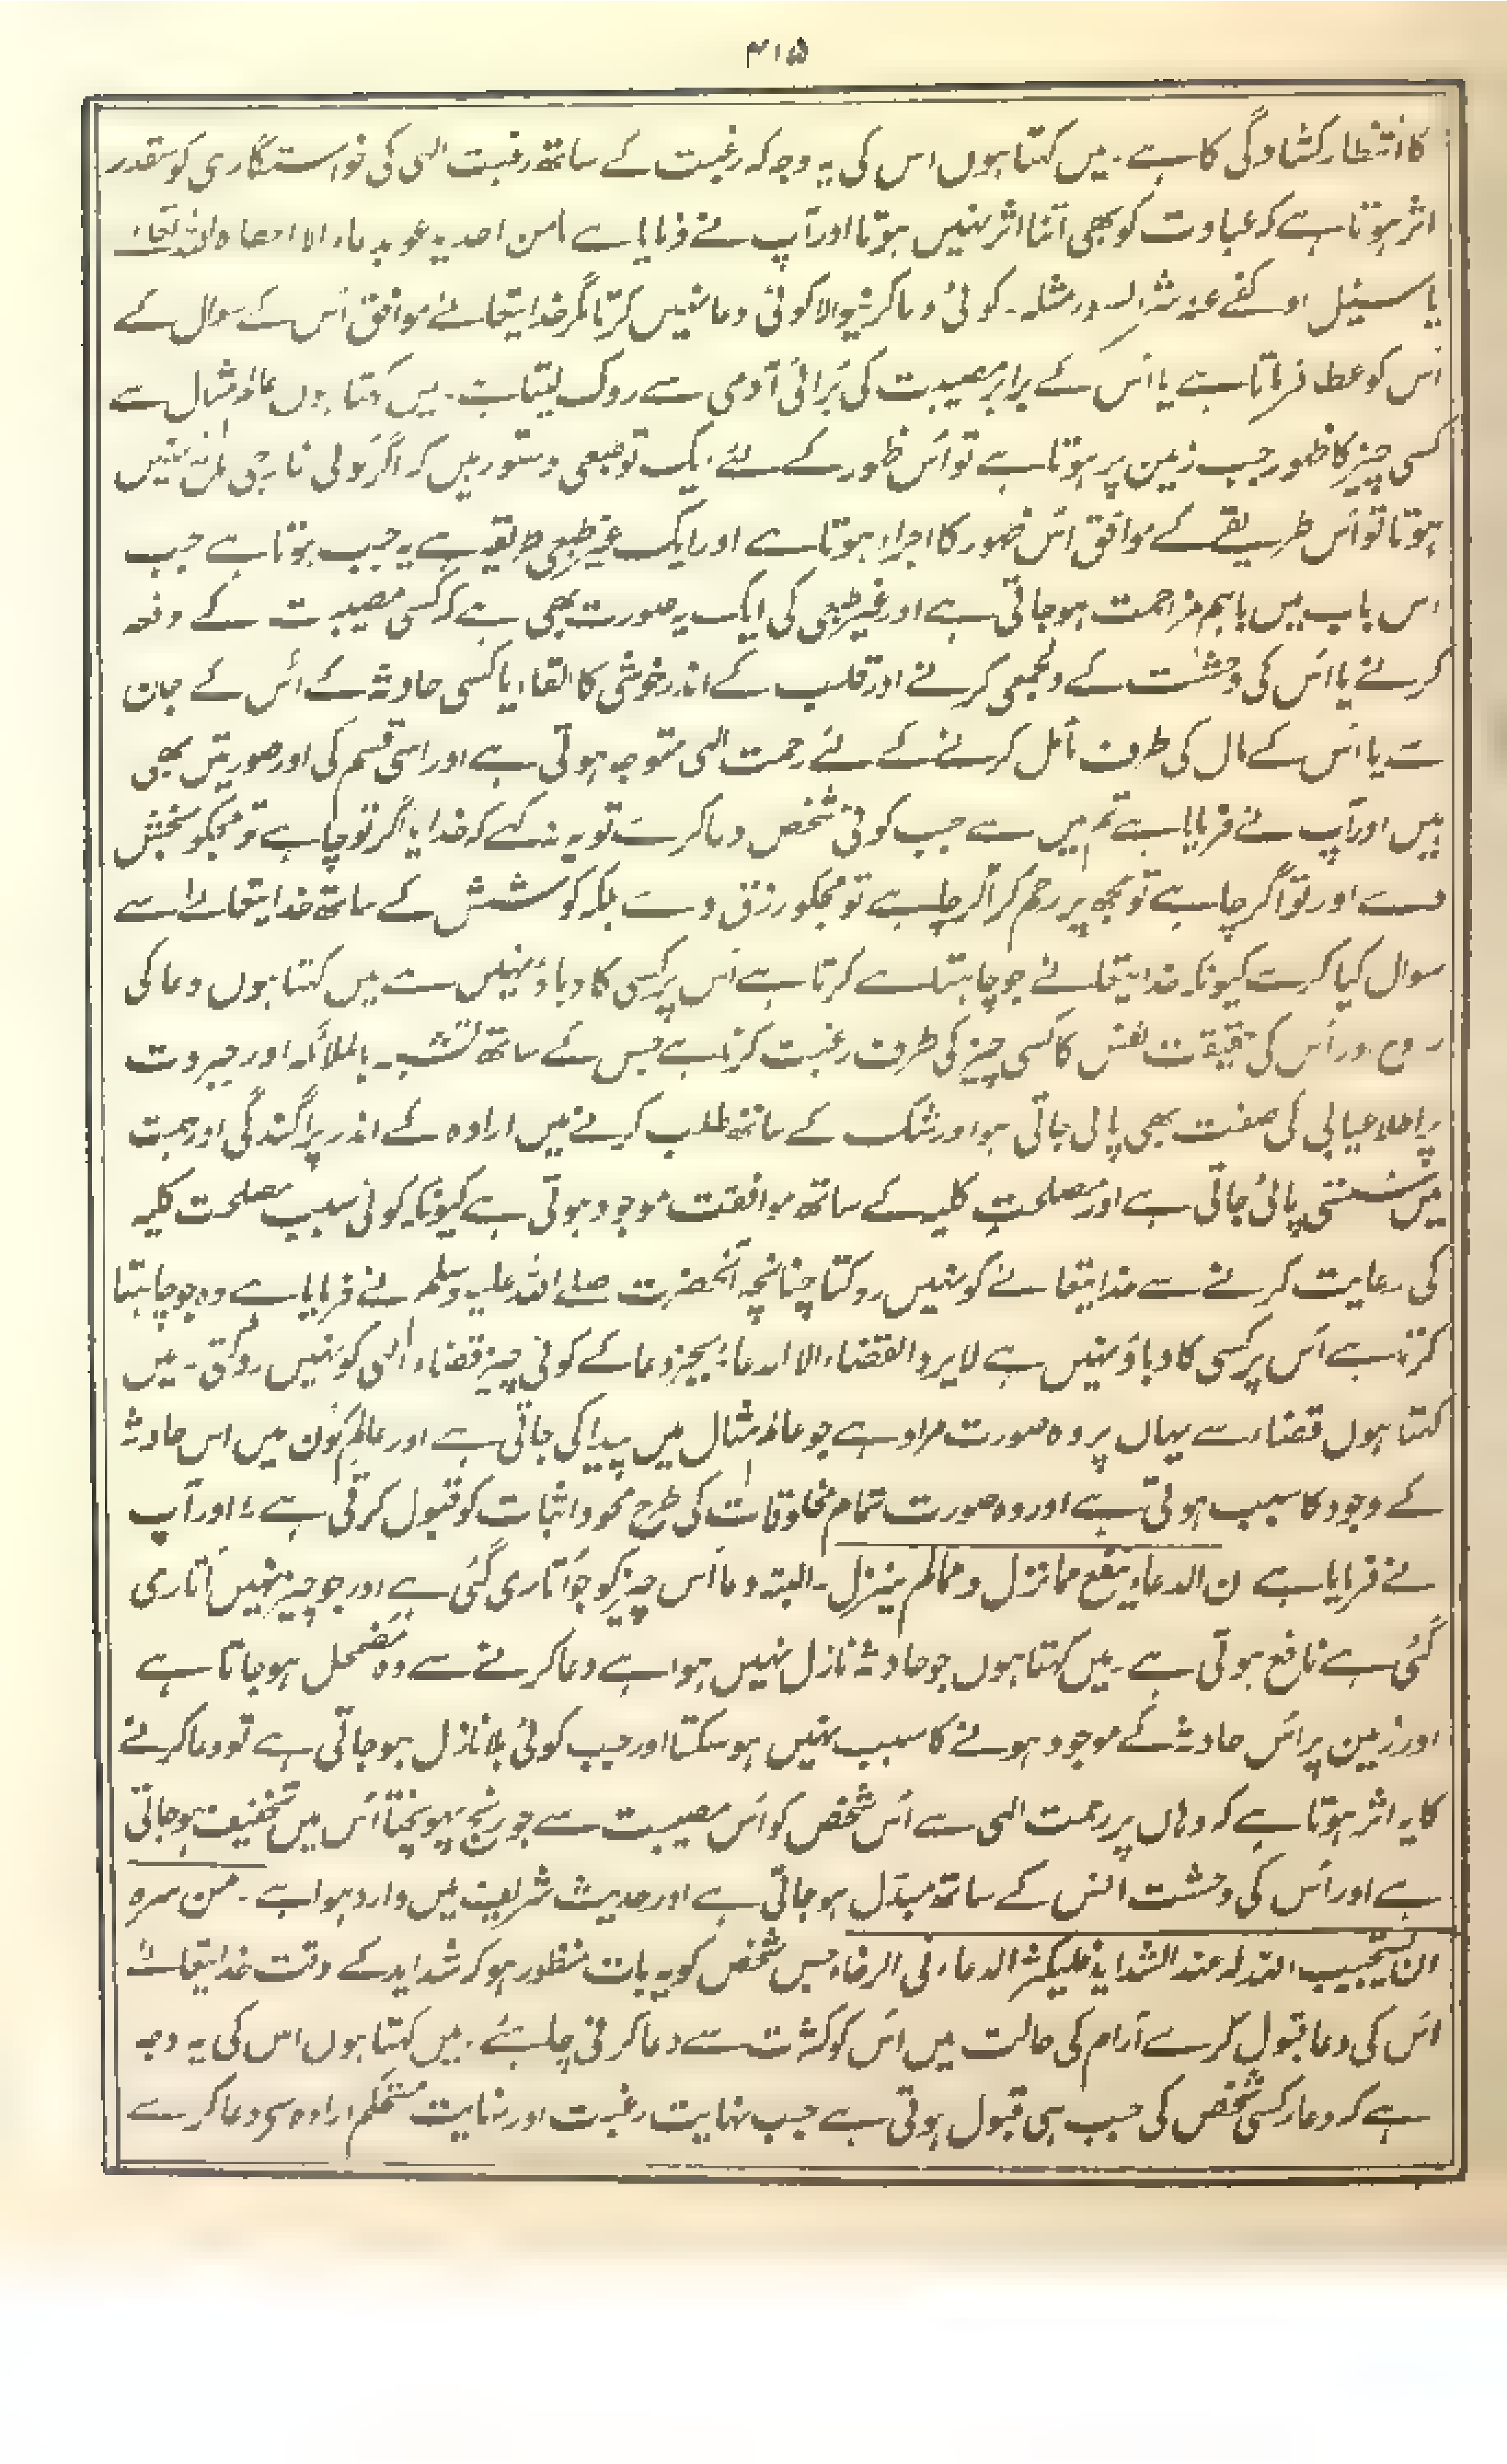 ۴۱۵
کا انتظار کشادگی کا ہے۔ میں کہتا ہوں اس کی یہ وجہ کہ رغبت کے ساتھ رغبت الٰہی کی خواستگاری کو سقدر
اثر ہوتا ہے کہ عبادت کو بھی اتنا اثر نہیں ہوتا اور آپ نے فرمایا ہے مامن احد یدعو بدعاء الا اتاہ اللہ تعالے
یا کوئی دعا کرنیوالا کوئی دعا نہیں کرتا مگر خدایتعالے موافق اُس کے سوال کے
اُس کو عطا فرماتا ہے یا اُس کے برابر مصیبت کی بُرائی آدمی سے روک لیتا ہے۔ میں کہتا ہوں عالم مثال سے
کسی چیز کا ظہور جب زمین پر ہوتا ہے تو اُس ظہور کے لئے ایک تو طبعی دستور ہیں کہ اگر کوئی خارجی مانع نہیں
ہوتا تو اُس طریقے کے موافق اُس ظہور کا اجراء ہوتا ہے اور ایک غیر طبعی طریقہ ہے یہ جب ہوتا ہے جب
اس باب میں باہم مزاحمت ہو جاتی ہے اور غیر طبعی کی ایک یہ صورت بھی ہے کہ کسی مصیبت کے دفعہ
کرنے یا اُس کی وحشت کے دلجمعی کرنے اور قلب کے اندر خوشی کا القاء یا کسی حادثہ کے اُس کے جان
سے یا اُس کے مال کی طرف مائل کرنے کے لئے رحمت الٰہی متوجہ ہوتی ہے اور اسی قسم کی اور صورتیں بھی
ہیں اور آپ نے فرمایا ہے تم میں سے جب کوئی شخص دعا کرے تو یہ نہ کہے کہ خدایا اگر تو چاہے تو مجکو بخش
دے اور تو اگر چاہے تو مجھ پر رحم کر اگر چاہے تو مجکو رزق دے بلکہ کوشش کے ساتھ خدایتعالےٰ سے
سوال کیا کرے کیونکہ خدایتعالے جو چاہتا ہے کرتا ہے اُس پر کسی کا دباؤ نہیں ہے میں کہتا ہوں دعا کی
روح اور اُس کی حقیقت نفس کا کسی چیز کی طرف رغبت کرنا ہے جس کے ساتھ تشبہ بالملائکہ اور جبروت
پر اطلاعیابی کی صفت بھی پائی جاتی ہو اور شک کے ساتھ طلب کرنے میں ارادہ کے اندر پراگندگی اور ہمت
میں سستی پائی جاتی ہے اور مصلحتِ کلیہ کے ساتھ موافقت موجود ہوتی ہے کیونکہ کوئی سبب مصلحت کلیہ
کی رعایت کرنے سے خدایتعالے کو نہیں روکتا چنانچہ آنحضرت صلے اللہ علیہ وسلم نے فرمایا ہے وہ جو چاہتا
کرتا ہے اُس پر کسی کا دباؤ نہیں ہے لایرد القضاء الا الدعاء بجز دعا کے کوئی چیز قضاء الٰہی کو نہیں روکتی۔ میں
کہتا ہوں قضاء سے یہاں پر وہ صورت مراد ہے جو عالم مثال میں پیدا کی جاتی ہے اور عالم کَون میں اس حادثہ
کے وجود کا سبب ہوتی ہے اور وہ صورت تمام مخلوقات کی طرح محو و اثبات کو قبول کرتی ہے، اور آپ
نے فرمایا ہے ان الدعاء ینفع مما نزل و مما لم ینزل۔ البتہ دعا اُس چیز کو جو اُتاری گئی ہے اور جو چیز نہیں اُتاری
گئی ہے نافع ہوتی ہے۔ میں کہتا ہوں جو حادثہ نازل نہیں ہوا ہے دعا کرنے سے وہ مضمحل ہو جاتا ہے
اور زمین پر اُس حادثہ کے موجود ہونے کا سبب نہیں ہو سکتا اور جب کوئی بلا نازل ہو جاتی ہے تو دعا کرنے
کا یہ اثر ہوتا ہے کہ وہاں پر رحمت الٰہی سے اُس شخص کو اُس مصیبت سے جو رنج پہونچتا اُس میں تخفیف ہو جاتی
ہے اور اُس کی وحشت انس کے ساتھ مبدّل ہو جاتی ہے اور حدیث شریف میں وارد ہوا ہے۔ من سرہ
ان یستجیب اللہ لہ عند الشداید فلیکثر الدعاء فی الرخاء جس شخص کو یہ بات منظور ہو کہ شداید کے وقت خدایتعالےٰ
اُس کی دعا قبول کرے آرام کی حالت میں اُس کو کثرت سے دعا کرنی چاہئے۔ میں کہتا ہوں اس کی یہ وجہ
ہے کہ دعا ہر کسی شخص کی جب ہی قبول ہوتی ہے جب نہایت رغبت اور نہایت مستحکم ارادہ سے دعا کرے